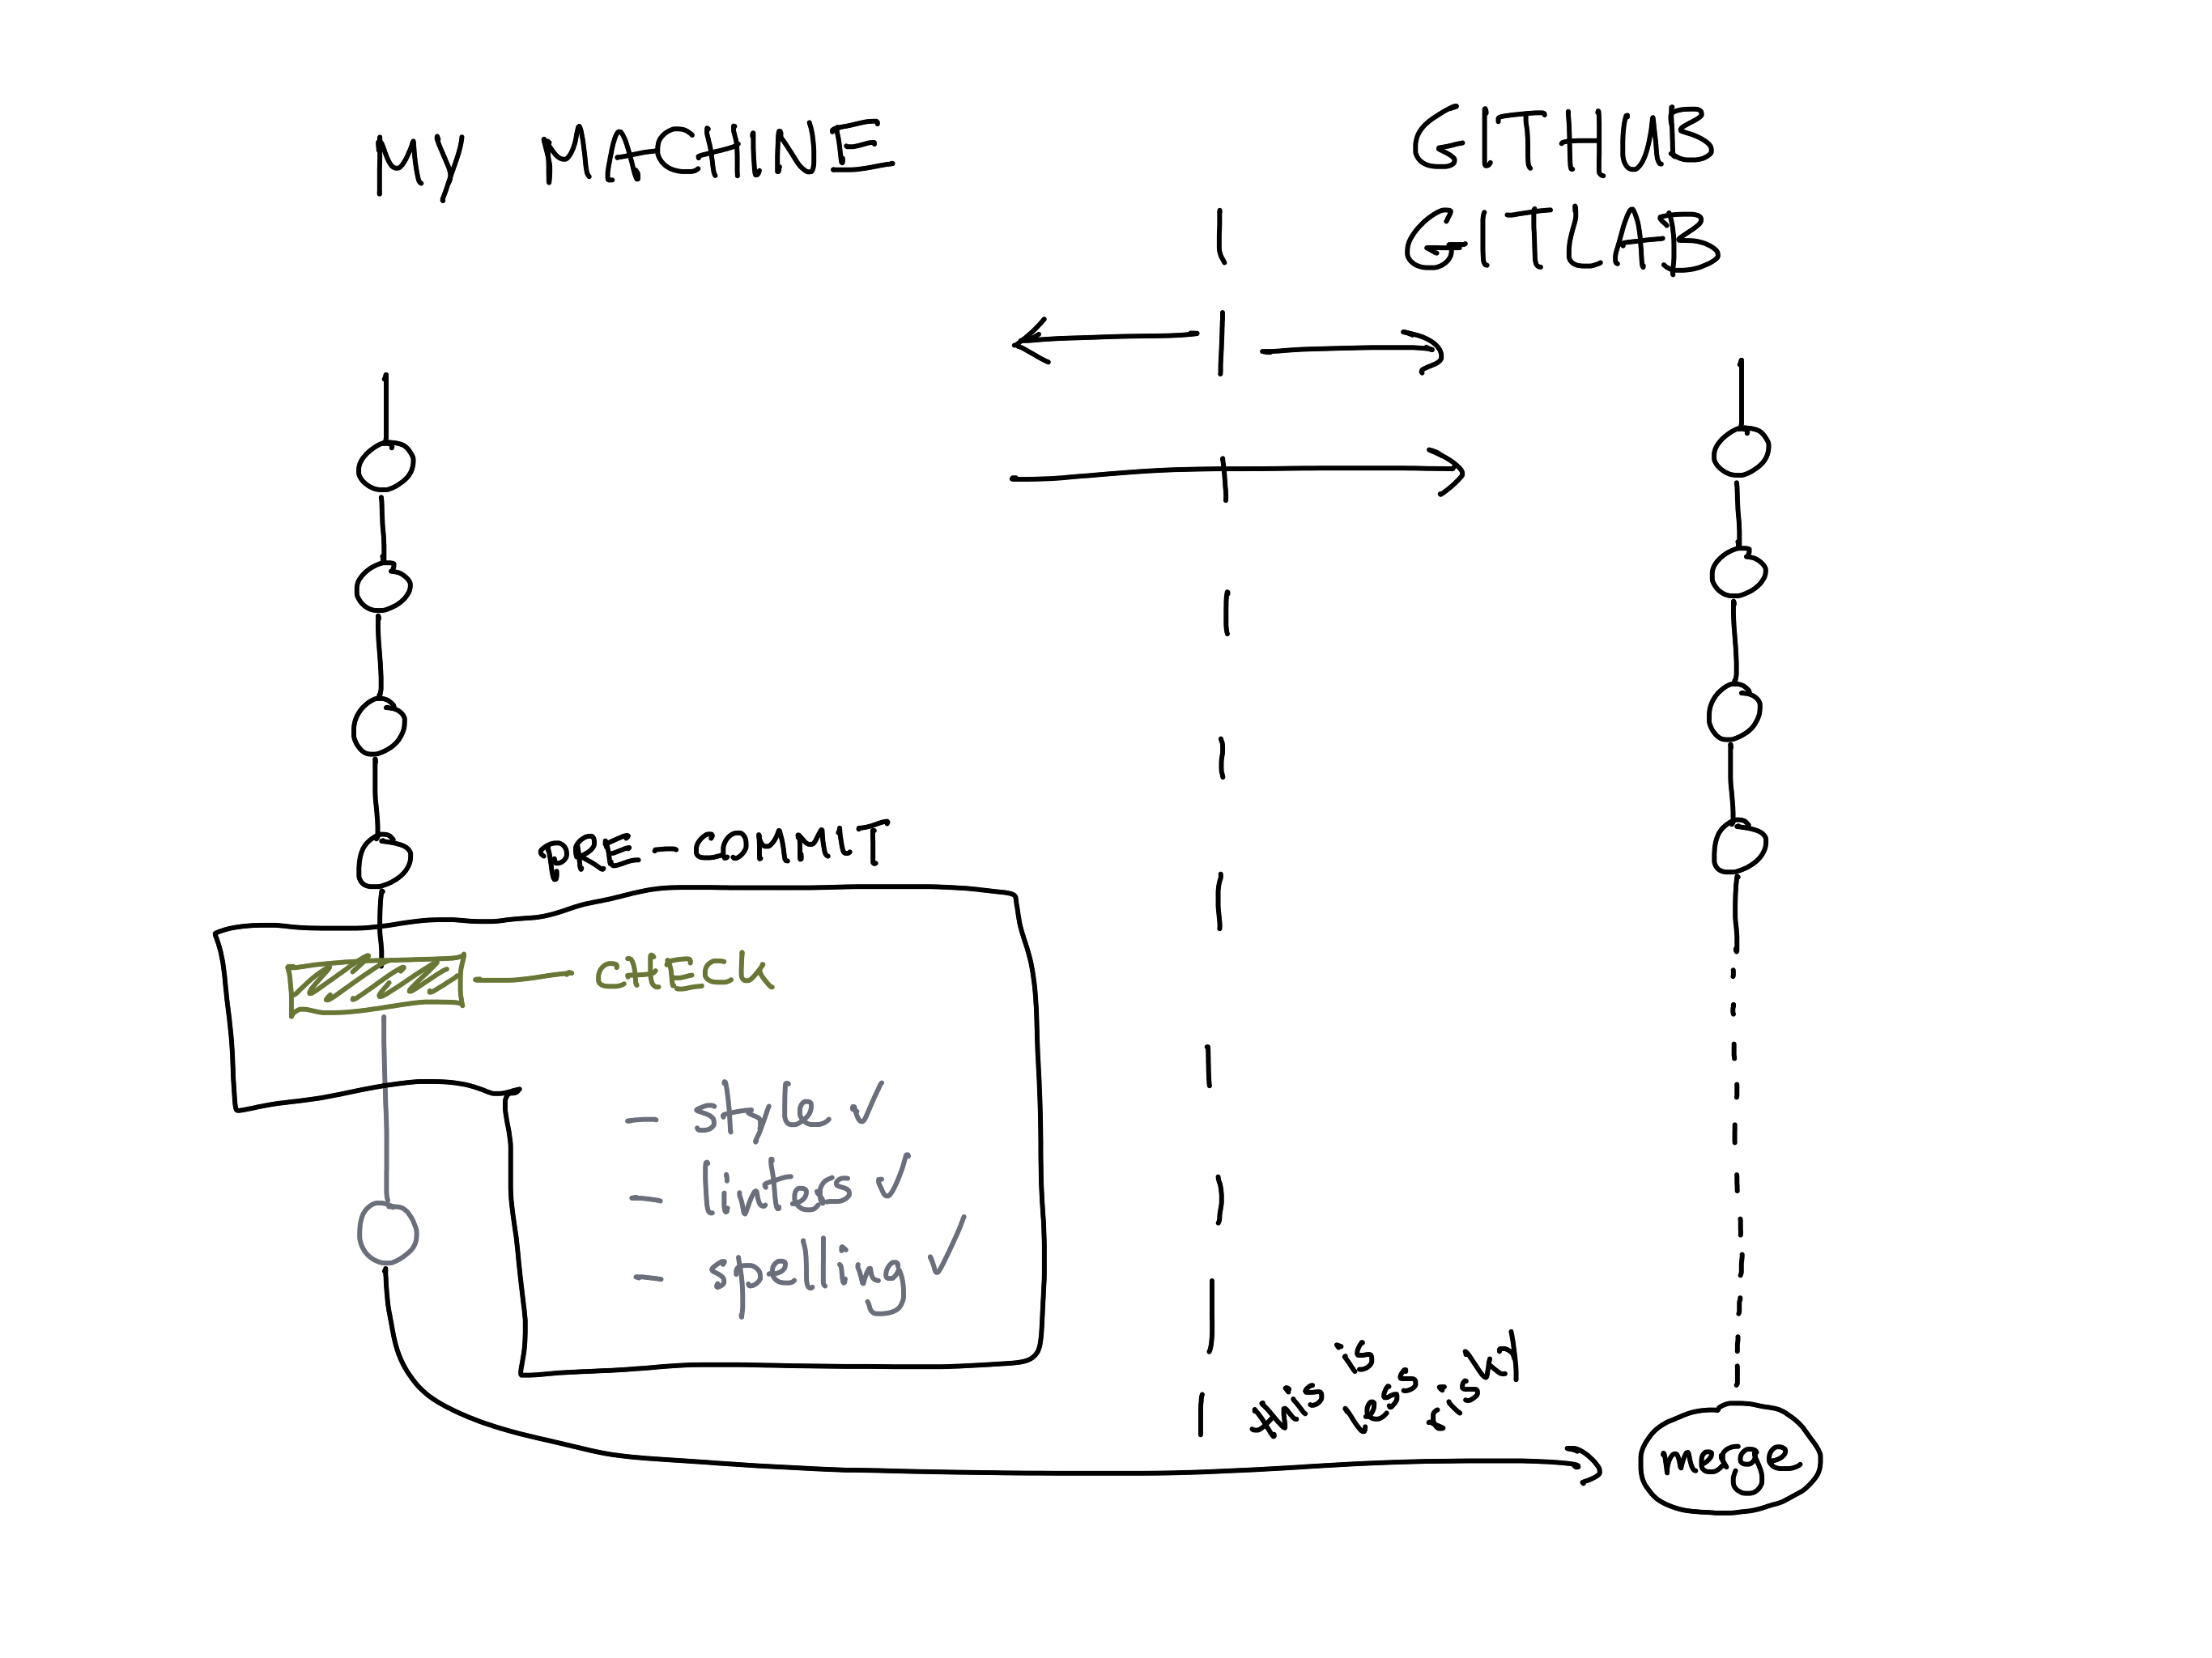 MY MACHINE
GITHUB
GITLAB
PRE-COMMIT
CHECK
- style ✓
- lintes ✓
- spelling ✓
this is
less
risky
merge